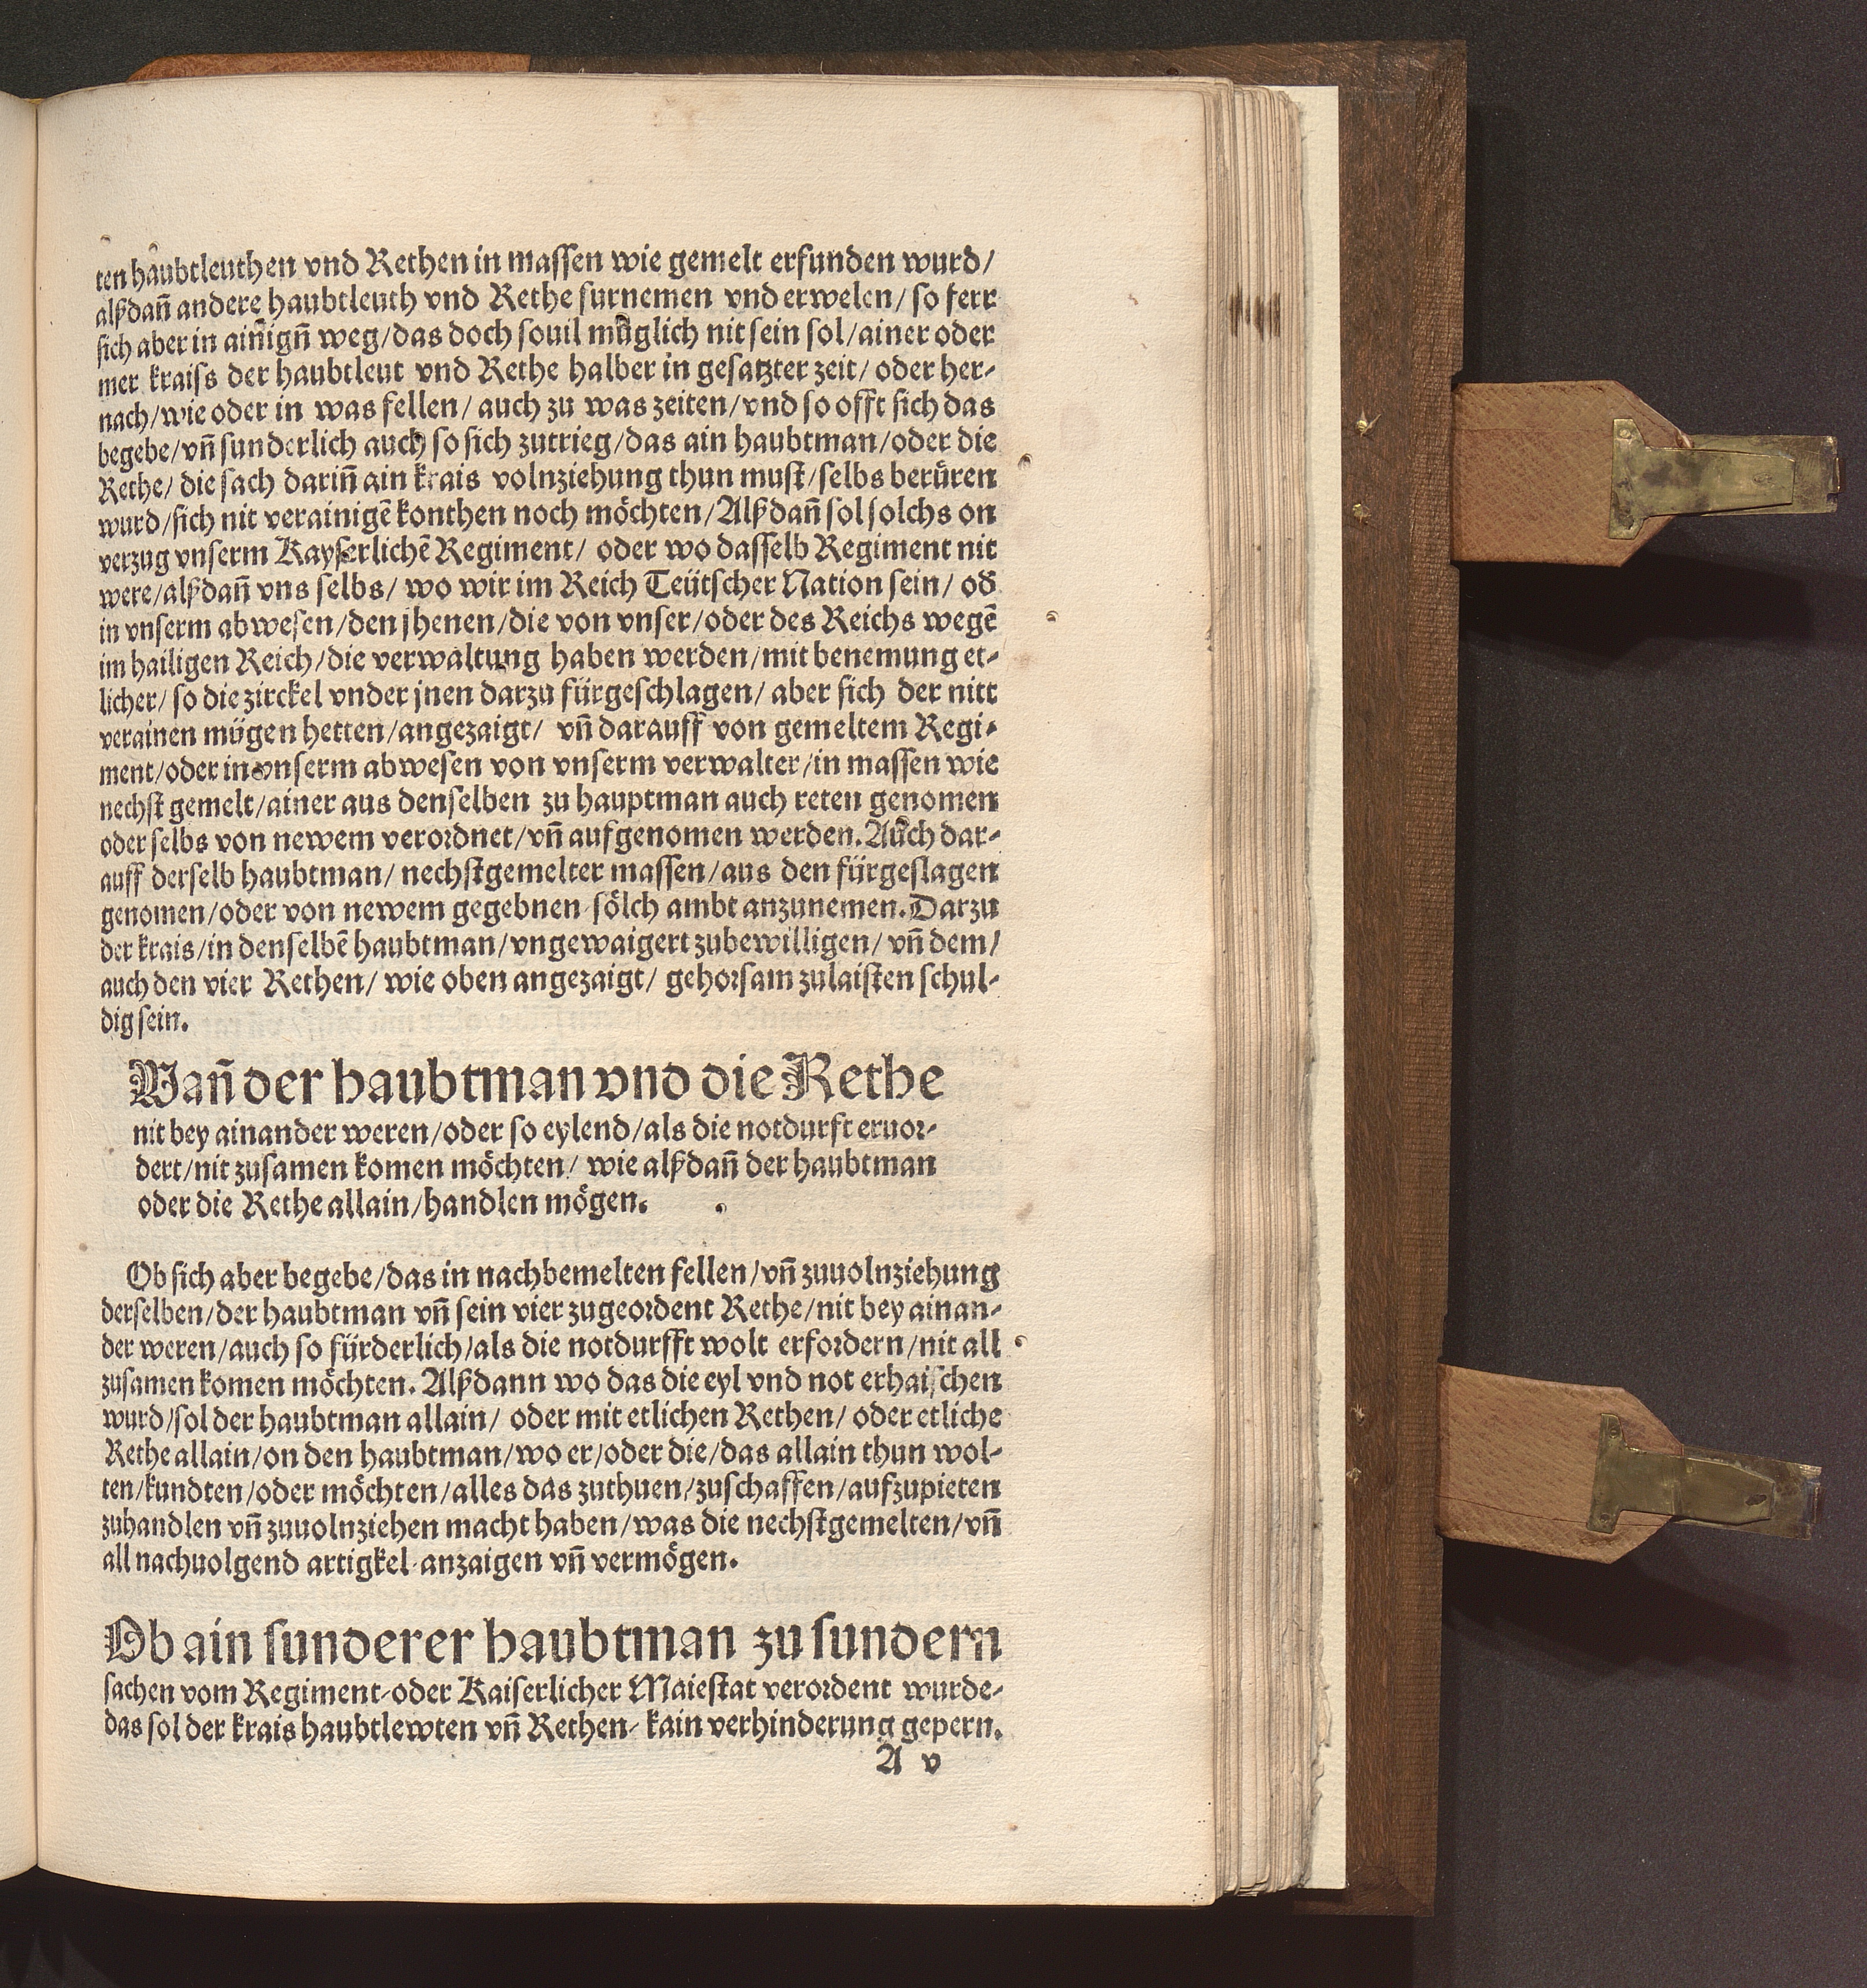 ten haubtleuthen vnd Rethen in massen wie gemelt erfunden wurd/
alßdañ andere haubtleuth vnd Rethe furnemen vnd erwelen/ so ferr
sich aber in aiñigñ weg/das doch souil müglich nit sein sol/ainer oder
mer kraiss der haubtleut vnd Rethe halber in gesatzter zeit/ oder her-
nach/wie oder in was fellen/ auch zu was zeiten/vnd so offt sich das
begebe/vñ sunderlich auch so sich zutrieg/das ain haubtman/oder die
Rethe/ die sach dariñ ain krais volnziehung thun must/selbs berüren
wurd/sich nit verainigē konthen noch möchten/Alßdañ sol solchs on
verzug vnserm Kayserlichē Regiment/ oder wo dasselb Regiment nit
were/alßdañ vns selbs/ wo wir im Reich Teütscher Nation sein/ od̃
in vnserm abwesen/den jhenen/die von vnser/oder des Reichs wegē
im hailigen Reich/die verwaltung haben werden/mit benemung et-
licher/ so die zirckel vnder jnen darzu fürgeschlagen/ aber sich der nitt
verainen mügen hetten/angezaigt/ vñ darauff von gemeltem Regi-
ment/oder in vnserm abwesen von vnserm verwalter/in massen wie
nechst gemelt/ainer aus denselben zu hauptman auch reten genomen
oder selbs von newem verordnet/vñ aufgenomen werden. Auch dar-
auff derselb haubtman/ nechstgemelter massen/aus den fürgeslagen
genomen/oder von newem gegebnen sölch ambt anzunemen. Darzu
der krais/in denselbē haubtman/vngewaigert zubewilligen/ vñ dem/
auch den vier Rethen/ wie oben angezaigt/ gehorsam zulaisten schul-
dig sein.
Wañ der haubtman vnd die Rethe
nit bey ainander weren/oder so eylend/als die notdurft eruor-
dert/nit zusamen komen möchten/ wie alßdañ der haubtman
oder die Rethe allain/handlen mögen.
Ob sich aber begebe/das in nachbemelten fellen/vñ zuuolnziehung
derselben/der haubtman vñ sein vier zugeordent Rethe/nit bey ainan-
der weren/auch so fürderlich/als die notdurfft wolt erfordern/nit all
zusamen komen möchten. Alßdann wo das die eyl vnd not erhaischen
wurd/sol der haubtman allain/ oder mit etlichen Rethen/ oder etliche
Rethe allain/on den haubtman/wo er/oder die/das allain thun wol-
ten/kundten/oder möchten/alles das zuthuen/zuschaffen/aufzupieten
zuhandlen vñ zuuolnziehen macht haben/was die nechstgemelten/vñ
all nachuolgend artigkel-anzaigen vñ vermögen.
Ob ain sunderer haubtman zu sundern
sachen vom Regiment-oder Kaiserlicher Maiestat verordent wurde-
das sol der krais haubtlewten vñ Rethen- kain verhinderung gepern.
A v